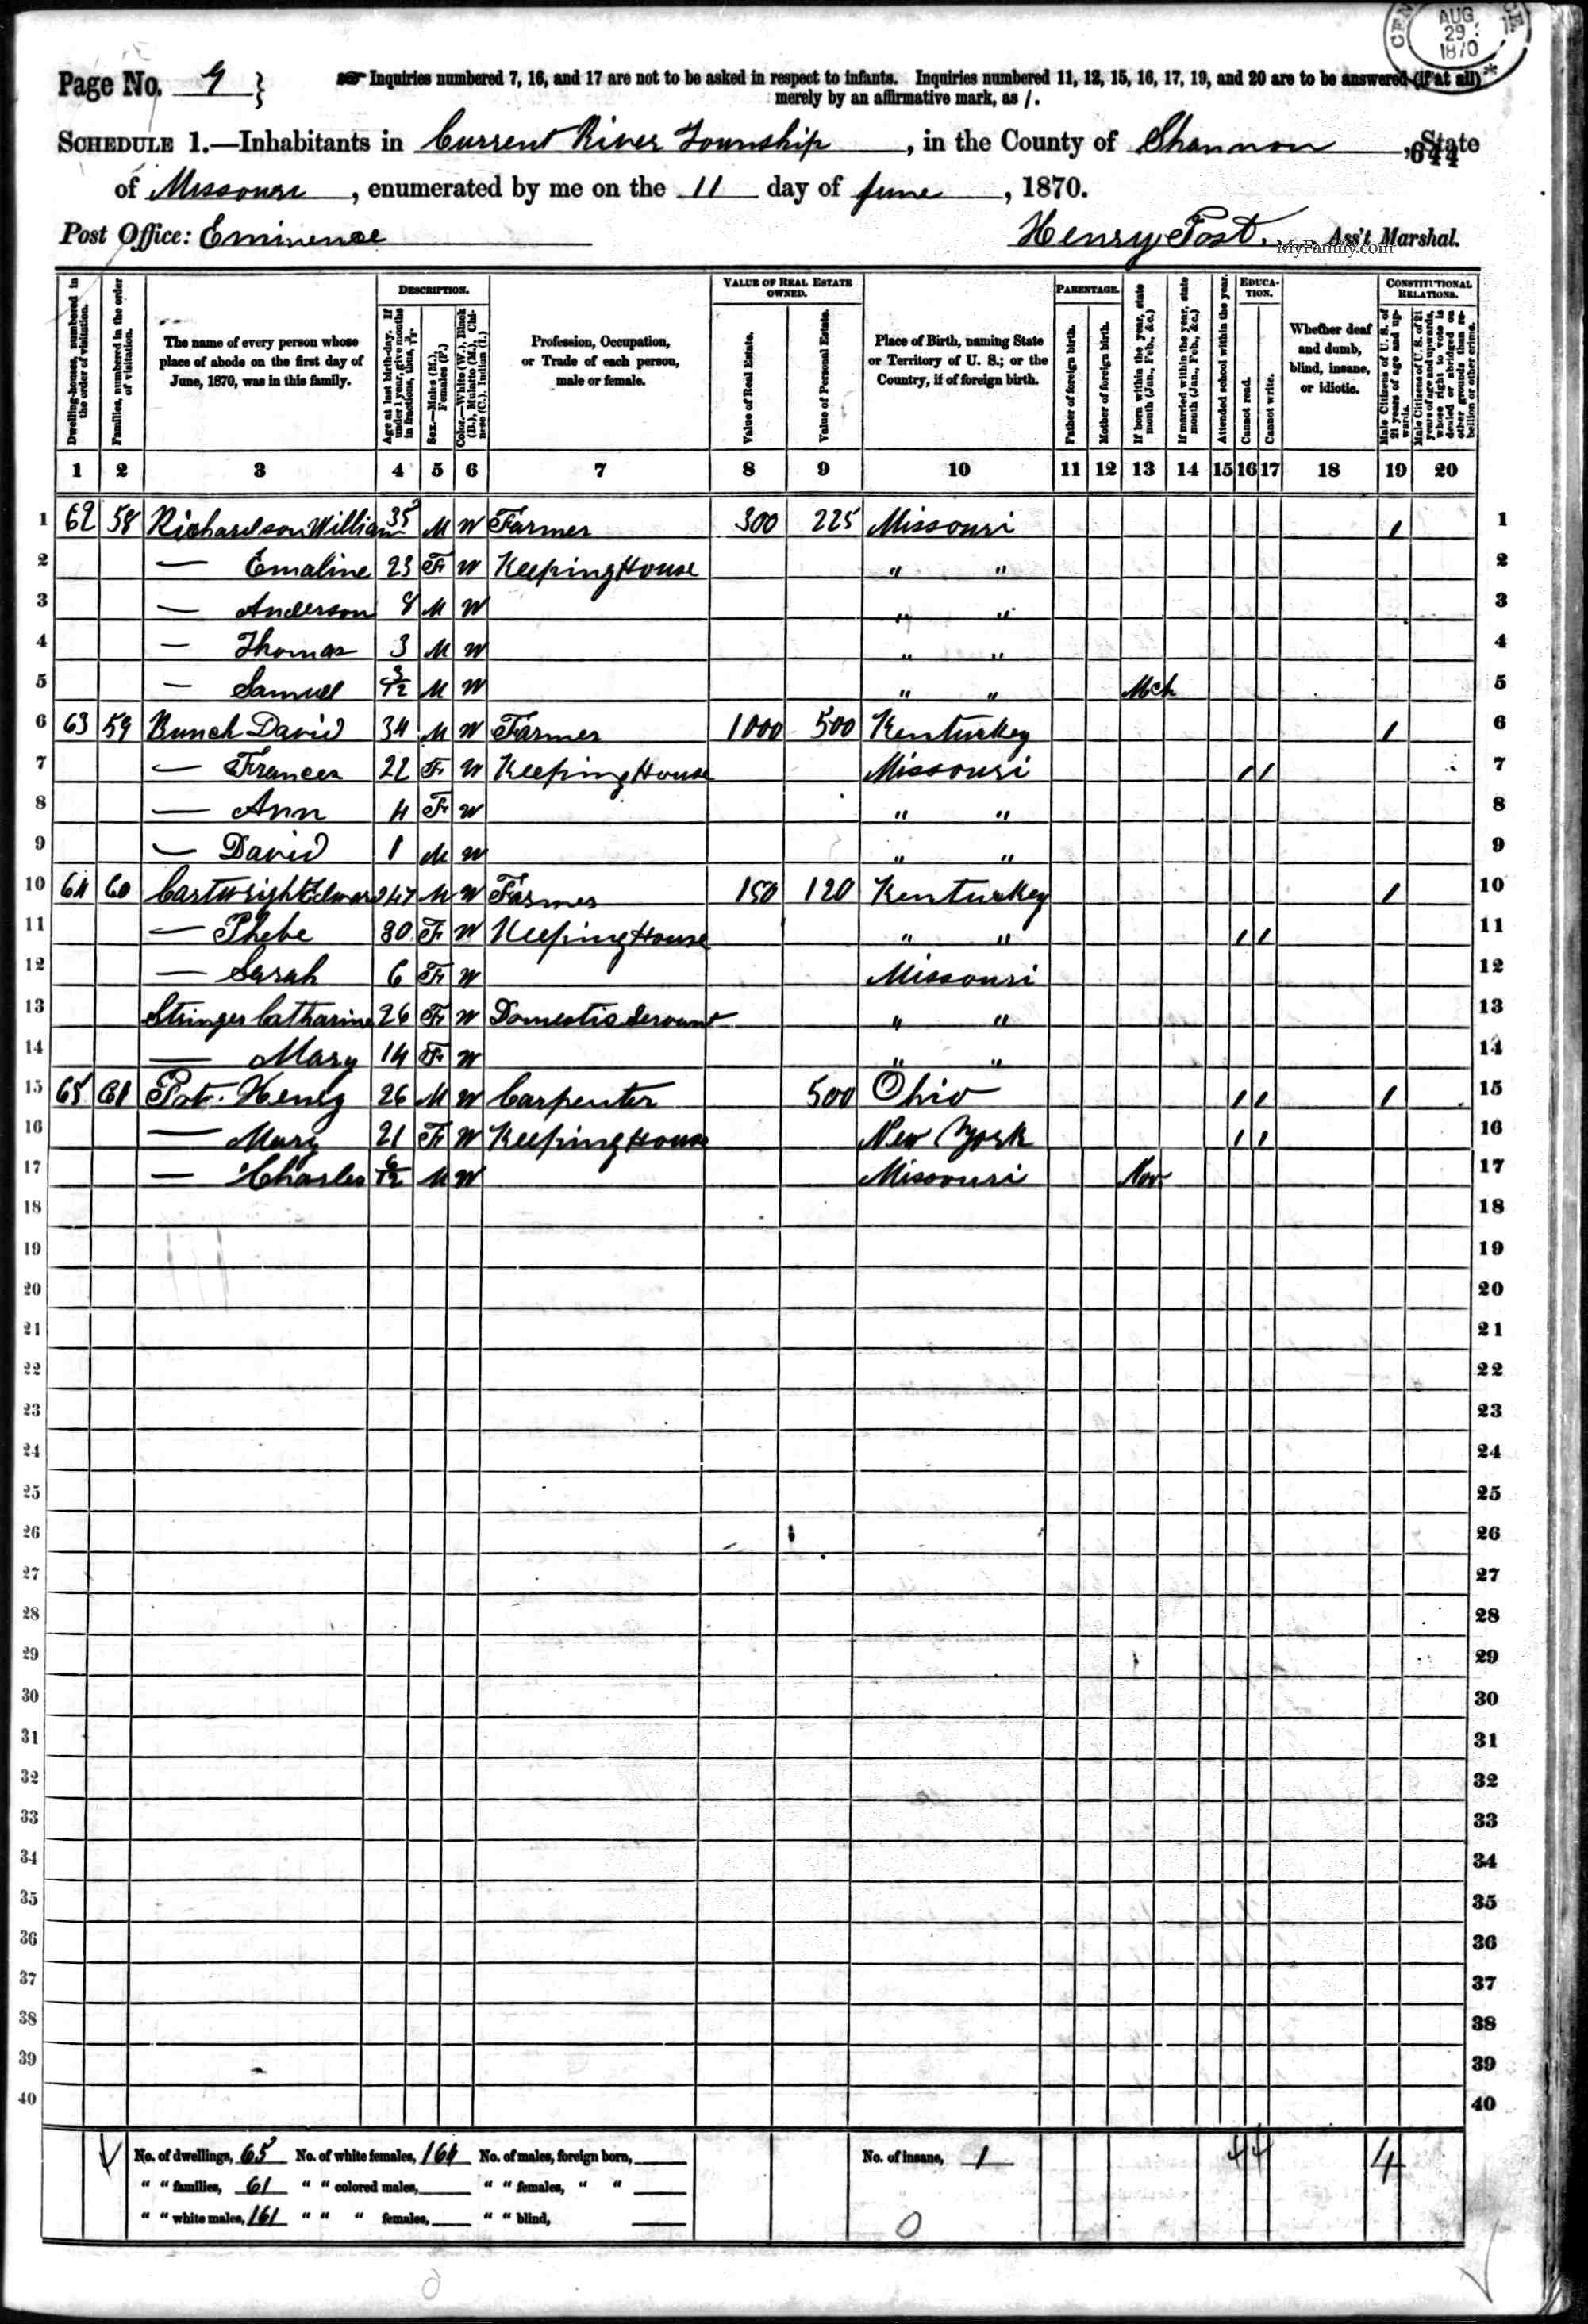 CEN CE
AUG
29
1870
*
Page No. 9 }
Inquiries numbered 7, 16, and 17 are not to be asked in respect to infants. Inquiries numbered 11, 12, 15, 16, 17, 19, and 20 are to be answered (if at all)
merely by an affirmative mark, as /.
SCHEDULE 1.—Inhabitants in Current River Township, in the County of Shannon, State
644
of Missouri, enumerated by me on the 11 day of June, 1870.
Post Office: Eminence Henry Post. Ass't Marshal.
MyFamily.com
Dwelling-houses, numbered in the order of visitation.
Families, numbered in the order of visitation.
The name of every person whose place of abode on the first day of June, 1870, was in this family.
DESCRIPTION.
Age at last birth-day. If under 1 year, give months in fractions, thus, 3/12.
Sex.—Males (M.), Females (F.)
Color.—White (W.), Black (B.), Mulatto (M.), Chinese (C.), Indian (I.)
Profession, Occupation, or Trade of each person, male or female.
VALUE OF REAL ESTATE OWNED.
Value of Real Estate.
Value of Personal Estate.
Place of Birth, naming State or Territory of U. S.; or the Country, if of foreign birth.
PARENTAGE.
Father of foreign birth.
Mother of foreign birth.
If born within the year, state month (Jan., Feb., &c.)
If married within the year, state month (Jan., Feb., &c.)
Attended school within the year.
EDUCATION.
Cannot read.
Cannot write.
Whether deaf and dumb, blind, insane, or idiotic.
CONSTITUTIONAL RELATIONS.
Male Citizens of U. S. of 21 years of age and upwards.
Male Citizens of U. S. of 21 years of age and upwards, whose right to vote is denied or abridged on other grounds than rebellion or other crime.
1 2 3 4 5 6 7 8 9 10 11 12 13 14 15 16 17 18 19 20
1 62 58 Richardson William 35 M W Farmer 300 225 Missouri / 1
2 — Emaline 23 F W Keeping House " " 2
3 — Anderson 8 M W " " 3
4 — Thomas 3 M W " " 4
5 — Samuel 3/12 M W " " Mch 5
6 63 59 Bunch David 34 M W Farmer 1000 500 Kentuckey / 6
7 — Frances 22 F W Keeping House Missouri / / 7
8 — Ann 4 F W " " 8
9 — David 1 M W " " 9
10 64 60 Cartwright Edward 47 M W Farmer 150 120 Kentuckey / 10
11 — Phebe 30 F W Keeping House " " / / 11
12 — Sarah 6 F W Missouri 12
13 Stringer Catharine 26 F W Domestic Servant " " 13
14 — Mary 14 F W " " 14
15 65 61 Henry 26 M W Carpenter 500 Ohio / / / 15
16 — Mary 21 F W Keeping House New York / / 16
17 — Charles 6/12 M W Missouri Nov 17
18 18
19 19
20 20
21 21
22 22
23 23
24 24
25 25
26 26
27 27
28 28
29 29
30 30
31 31
32 32
33 33
34 34
35 35
36 36
37 37
38 38
39 39
40 40
No. of dwellings, 65 No. of white females, 164 No. of males, foreign born, No. of insane, 1 4 4 4
" " families, 61 " " colored males, " " females, " "
" " white males, 161 " " " females, " " blind, 0